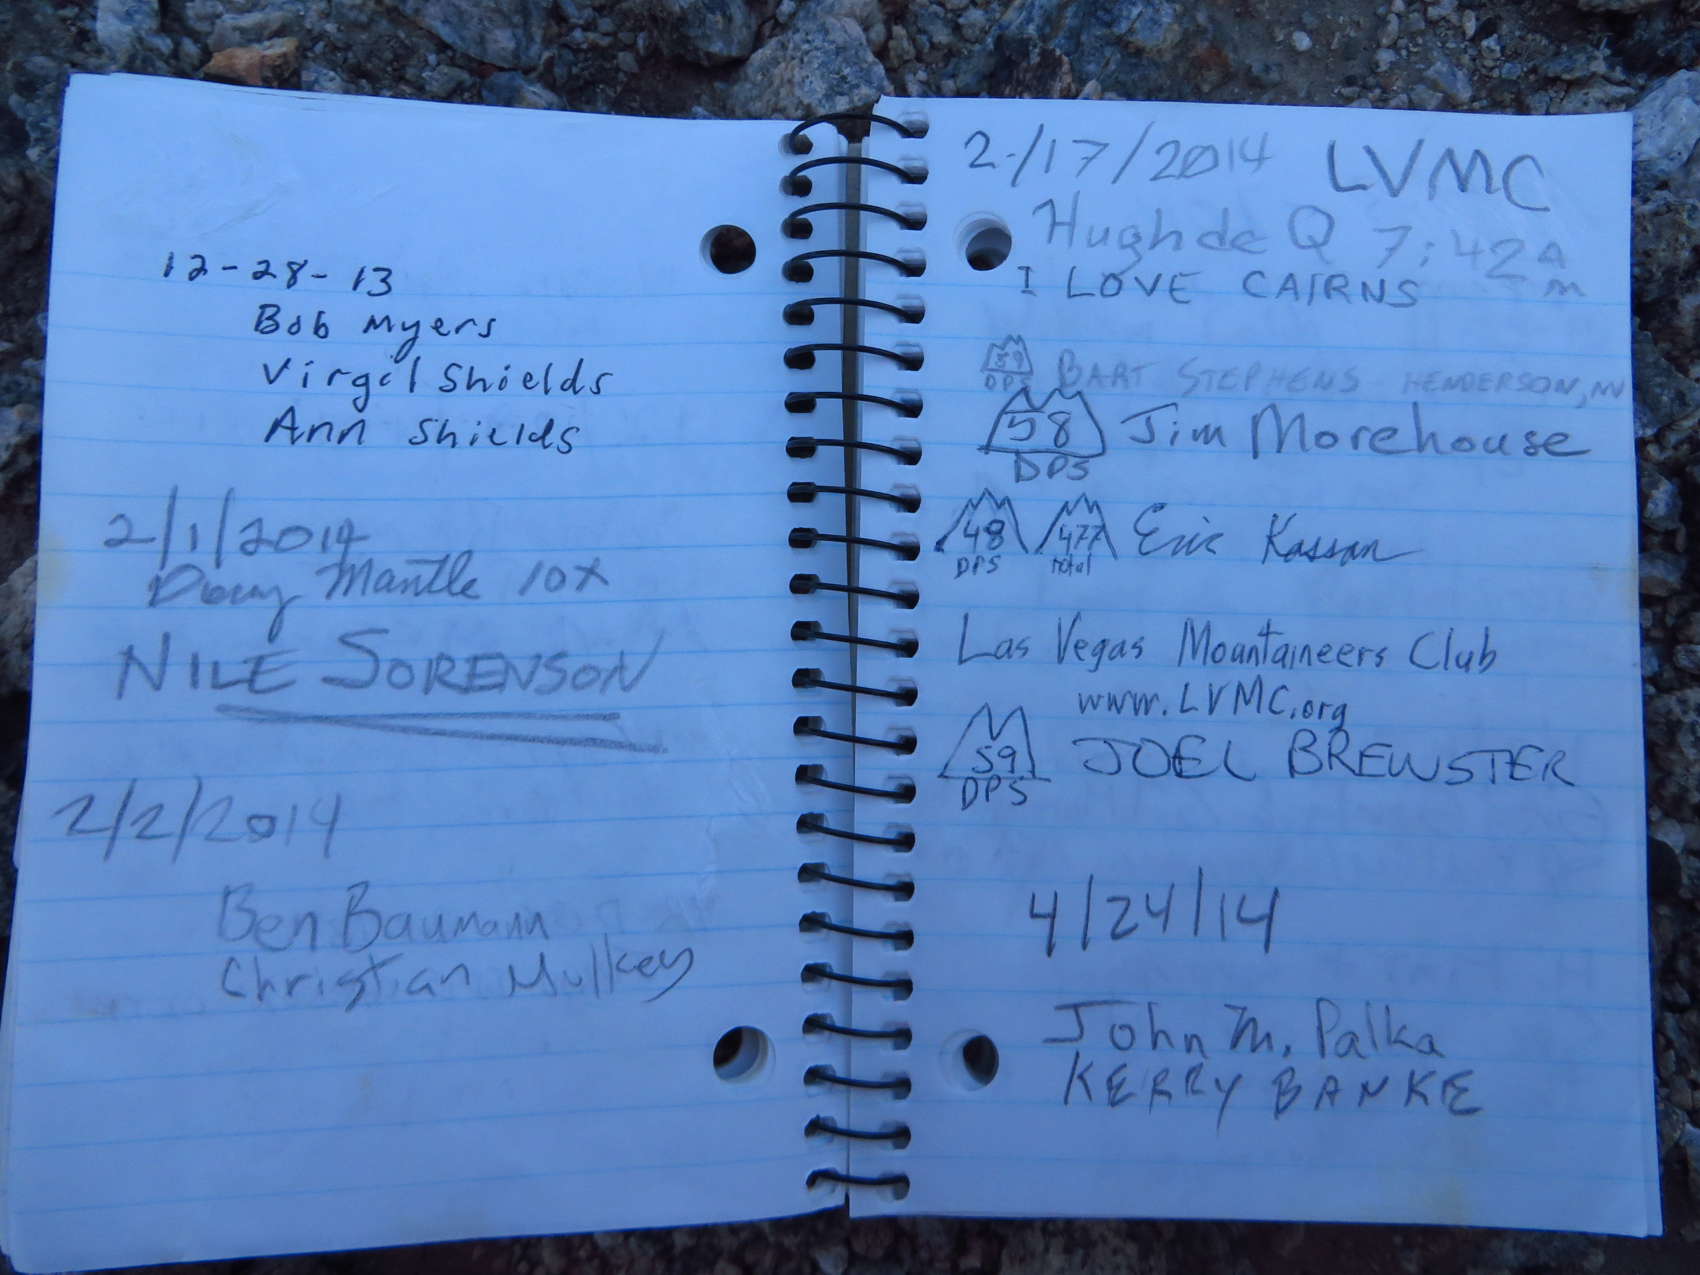 12-28-13
Bob Myers
Virgil Shields
Ann Shields
2/1/2014
Doug Mantle 10x
NILE SORENSON
2/2/2014
Ben Baumann
Christian Mulkey
2/17/2014 LVMC
Hugh de Q 7:42 AM
I LOVE CAIRNS
59 DPS BART STEPHENS HENDERSON, NV
58 DPS Jim Morehouse
48 DPS 477 total Eric Kassan
Las Vegas Mountaineers Club
www.LVMC.org
59 DPS JOEL BREWSTER
4/24/14
John M. Palka
KERRY BANKE